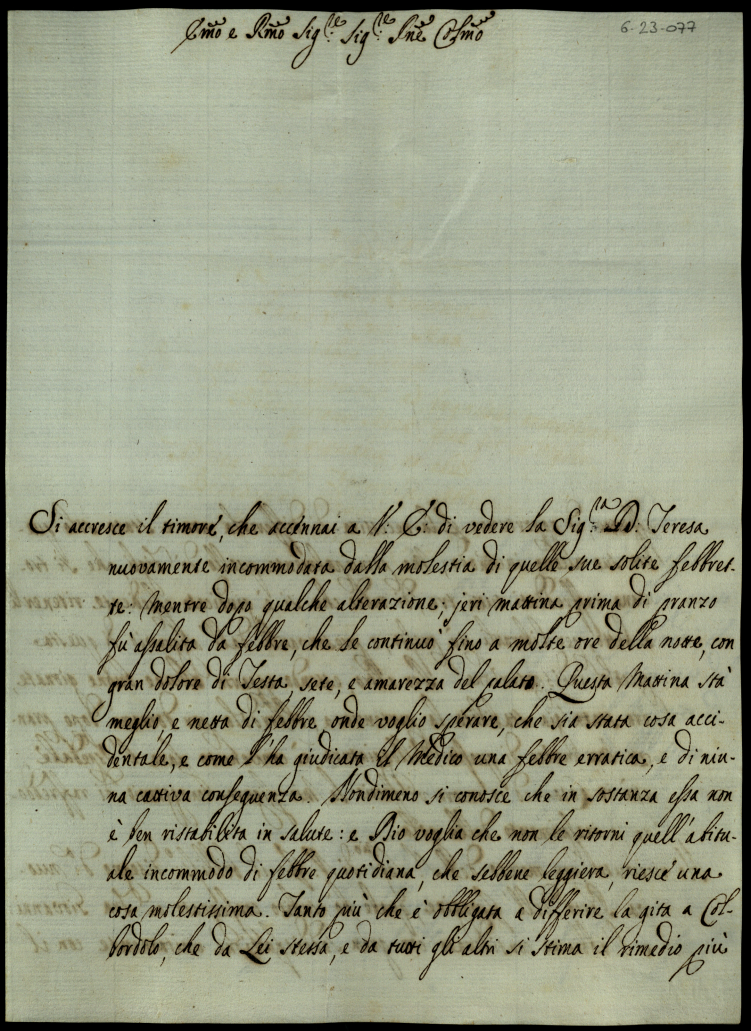 Emo e Rmo Sigre. Sigre. Pne Colmo
6-23-077
Si accresce il timore, che accennai a V: E: di vedere la Sigra. D: Teresa
nuovamente incommodata dalla molestia di quelle sue solite febbret-
te: mentre dopo qualche alterazione, jeri mattina prima di pranzo
fù assalita da febbre, che le continuò fino a molte ore della notte, con
gran dolore di Testa, sete, e amarezza del palato. Questa Mattina stà
meglio, e netta di febbre, onde voglio sperare, che sia stata cosa acci-
dentale, e come l'ha giudicata il Medico una febbre erratica, e di niu-
na cattiva conseguenza. Nondimeno si conosce che in sostanza essa non
è ben ristabilita in salute: e Dio voglia che non le ritorni quell'abitu-
ale incommodo di febbre quotidiana, che sebbene leggiera, riesce una
cosa molestissima. Tanto più che è obbligata a differire la gita a Col-
bordolo, che da Lei stessa, e da tutti gli altri si stima il rimedio più